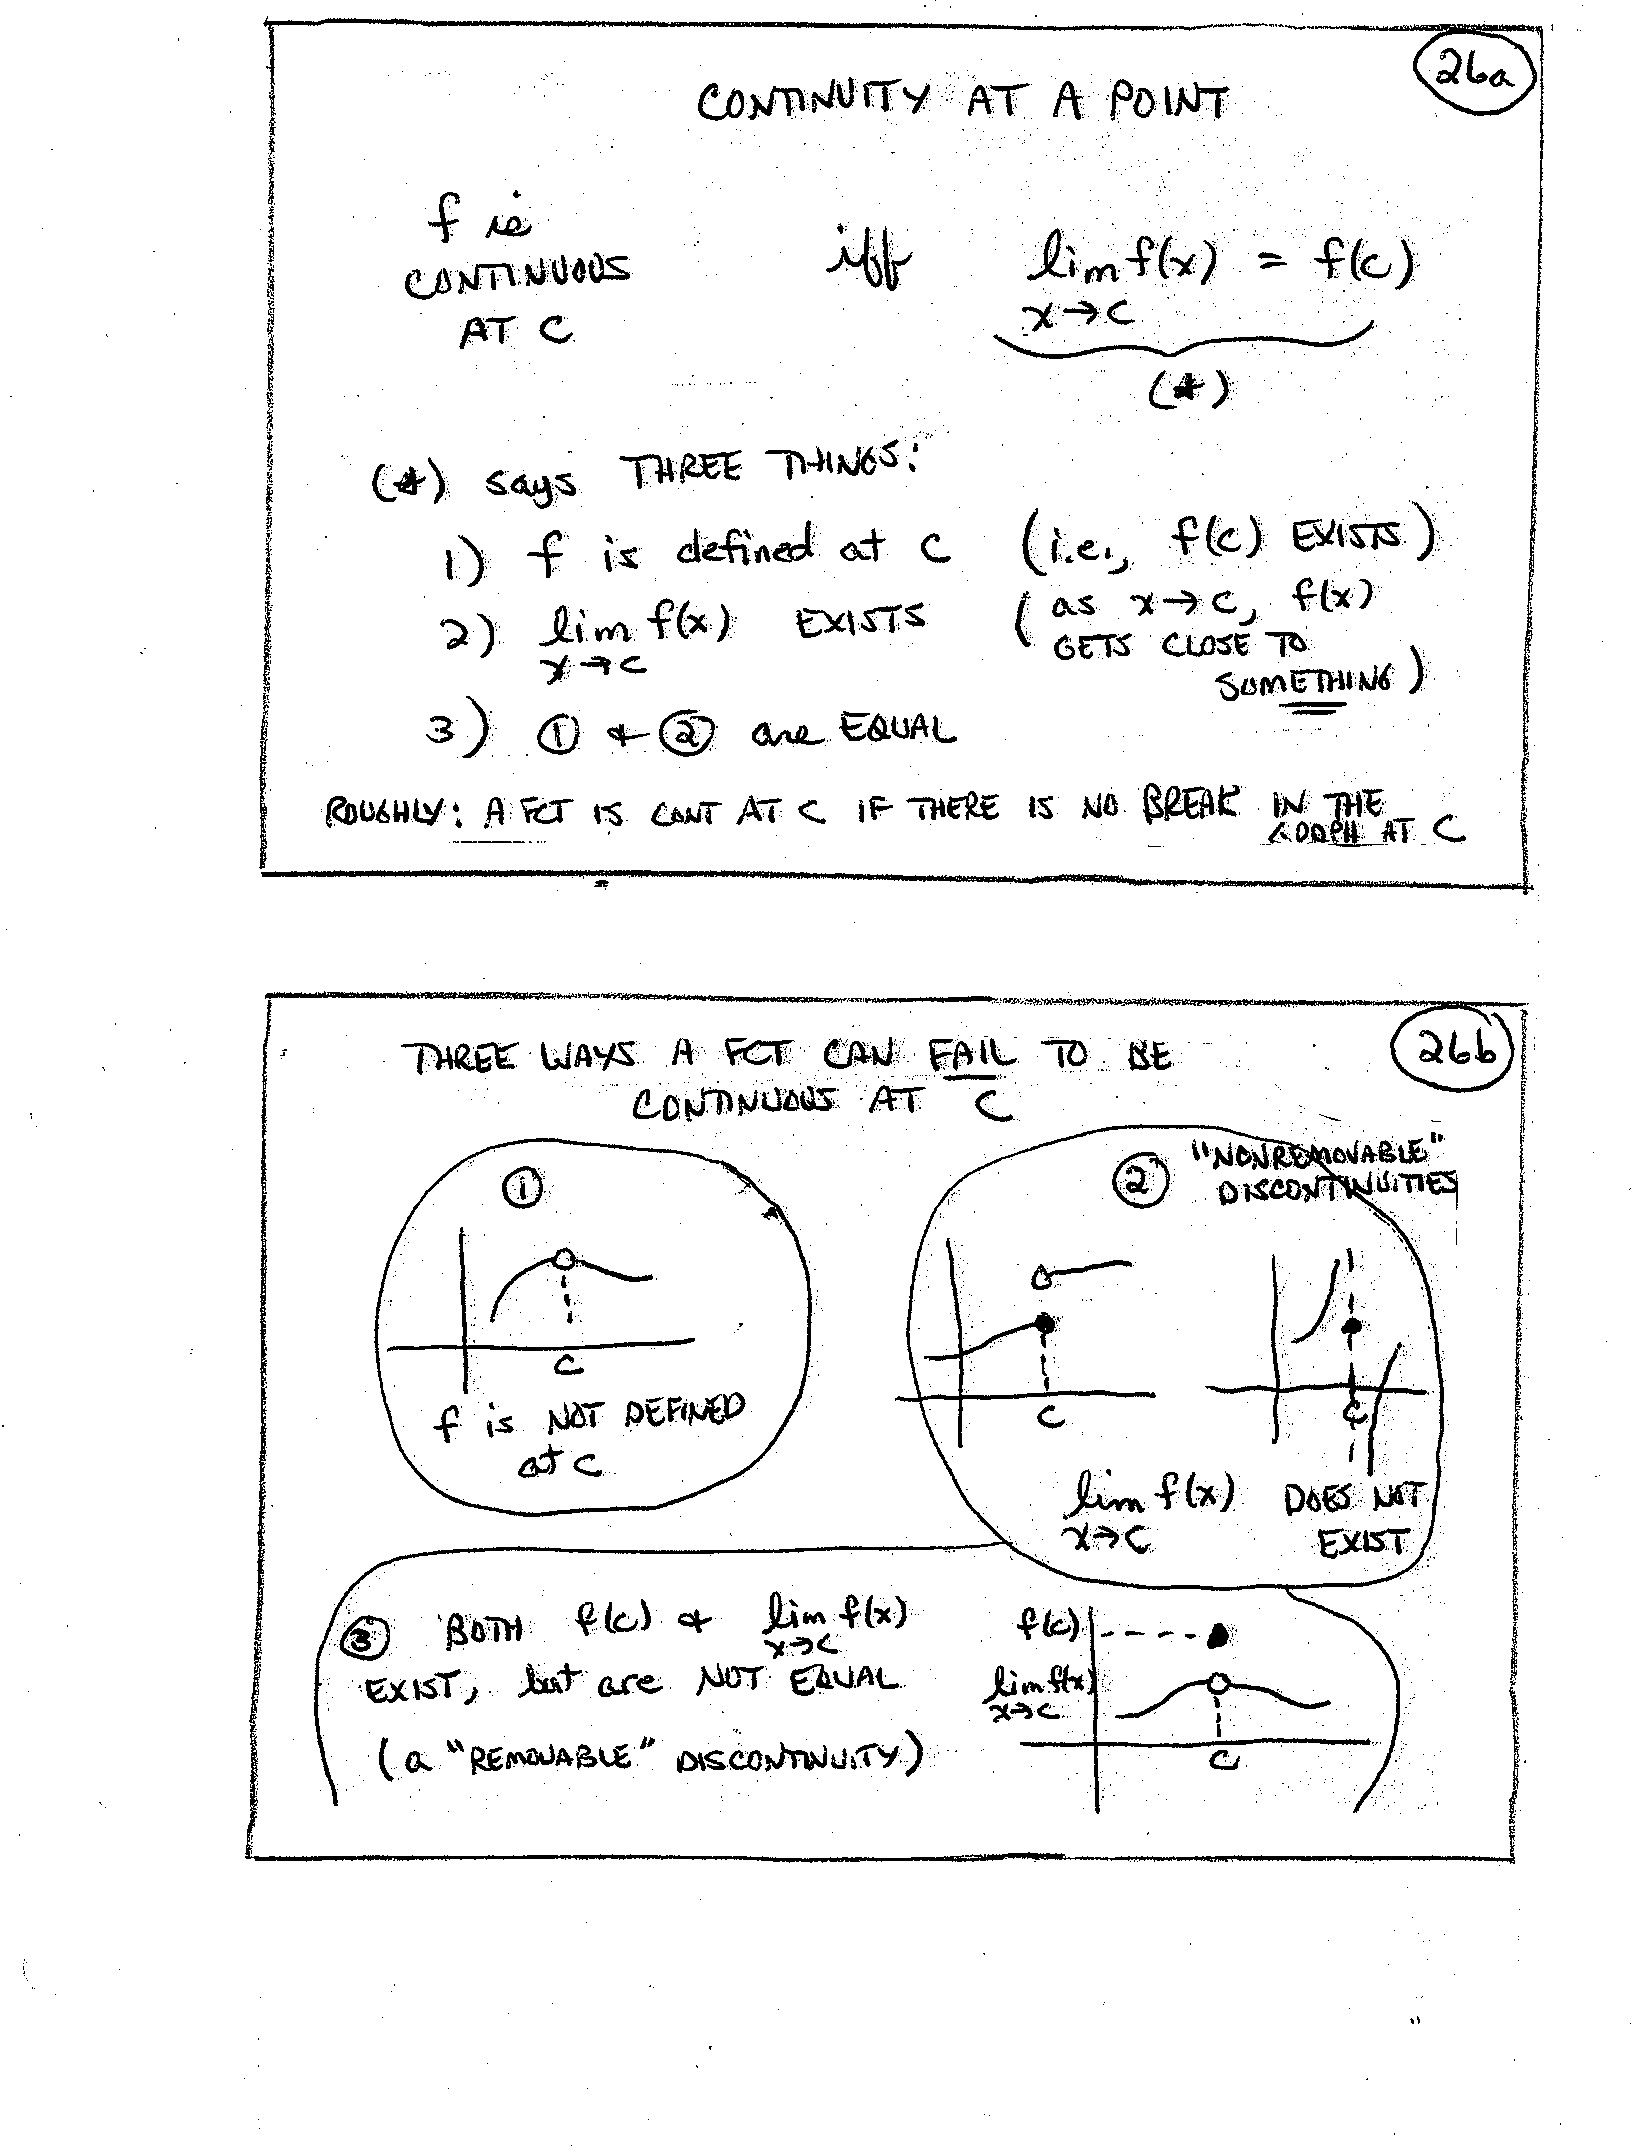 26a
CONTINUITY AT A POINT
f is
CONTINUOUS
AT C
iff
lim f(x) = f(c)
x→c
(*)
(*) says THREE THINGS:
1) f is defined at c (i.e., f(c) EXISTS)
2) lim f(x) EXISTS (as x→c, f(x)
x→c
GETS CLOSE TO
SOMETHING)
3) ① + ② are EQUAL
ROUGHLY: A FCT IS CONT AT C IF THERE IS NO BREAK IN THE
GRAPH AT C
26b
THREE WAYS A FCT CAN FAIL TO BE
CONTINUOUS AT C
①
C
f is NOT DEFINED
at c
② "NONREMOVABLE"
DISCONTINUITIES
C
C
lim f(x) DOES NOT
x→c EXIST
③ BOTH f(c) + lim f(x)
x→c
EXIST, but are NOT EQUAL
(a "REMOVABLE" DISCONTINUITY)
f(c)
lim f(x)
x→c
C